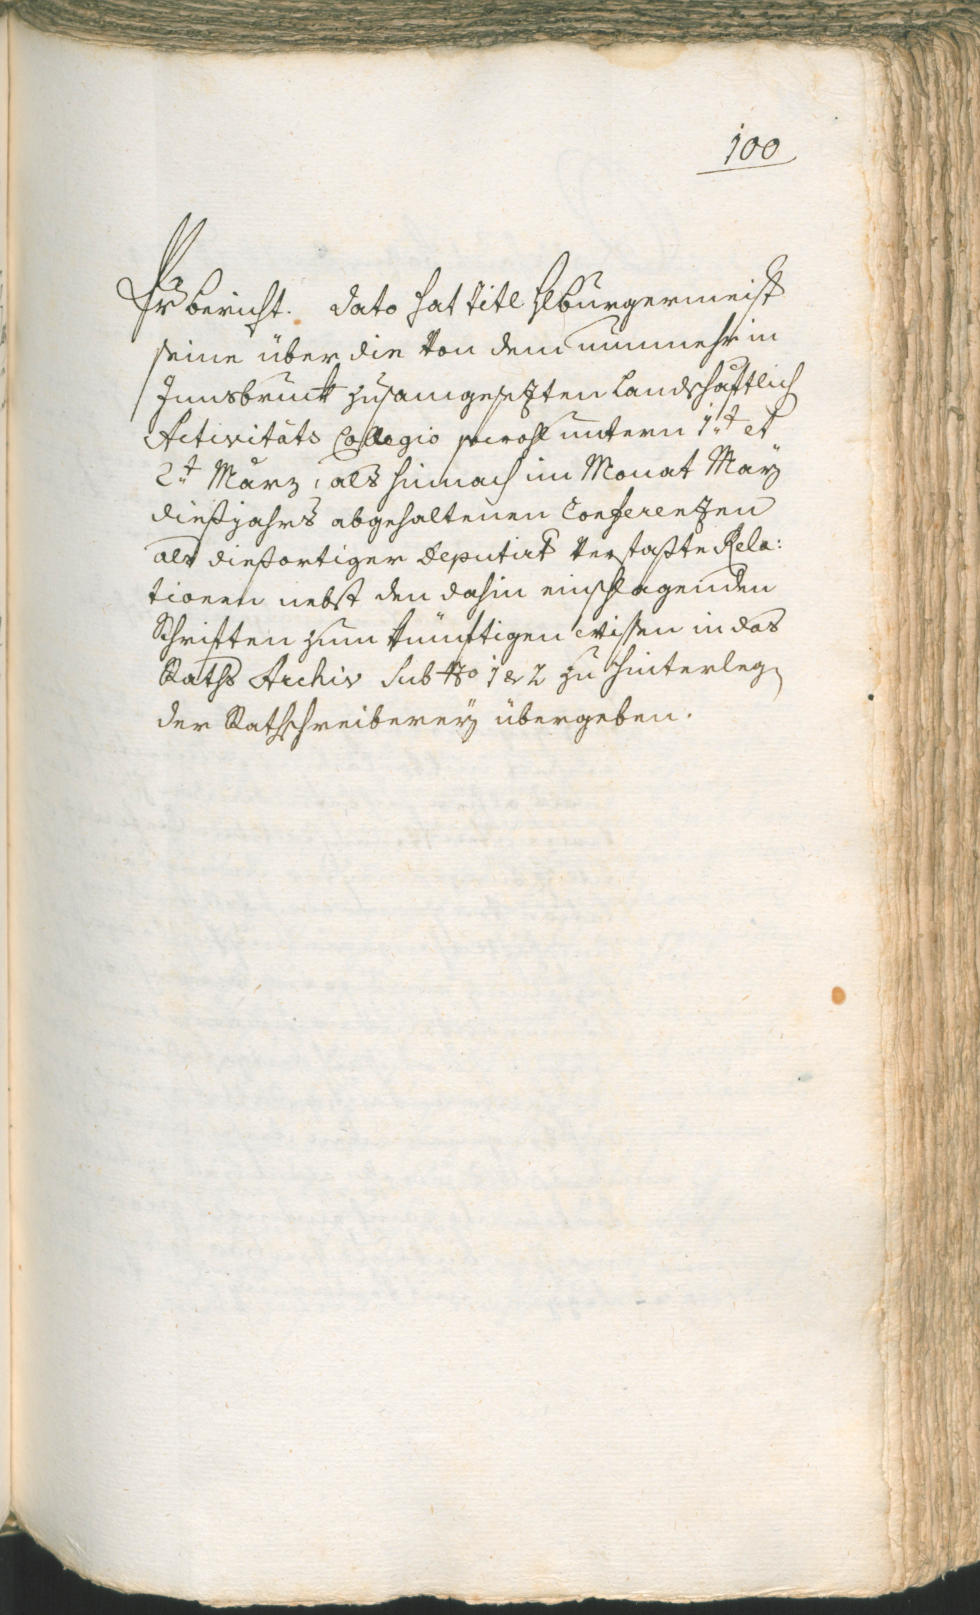 100
Pr bericht. Dato hat titl H burgermeist
seine über die von dem nunmehr in
Innsbruck zusamgesezten Landschaftlich
Activitäts Collegio sowohl untern 1t et
2t März, als hinnach im Monat May
dießjahrs abgehaltenen Conferenzen
als dießortiger Deputirt verfaßte Rela:
tionen nebst den dahin einschlagenden
Schriften zum künftigen Wissen in das
Raths Archiv sub No 1 & 2 zu hinterleg
der Rathschreiberey übergeben.